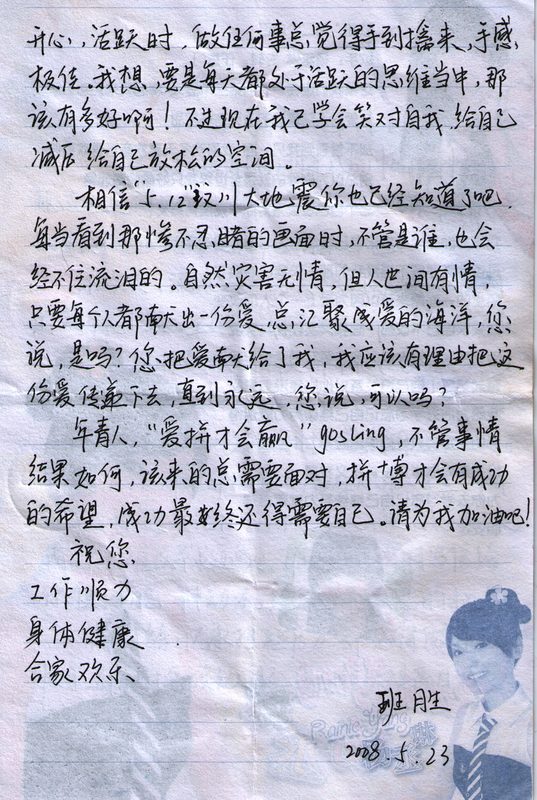 开心,活跃时,做任何事总觉得手到擒来,手感
极佳。我想,要是每天都处于活跃的思维当中,那
该有多好啊!不过现在我已学会笑对自我,给自己
减压给自己放松的空间。
相信“5.12”汶川大地震你也已经知道了吧,
每当看到那惨不忍睹的画面时,不管是谁,也会
经不住流泪的。自然灾害无情,但人世间有情,
只要每个人都献出一份爱,总汇聚成爱的海洋,您
说,是吗?您把爱献给了我,我应该有理由把这
份爱传递下去,直到永远,您说,可以吗?
年青人,“爱拼才会赢”gosling,不管事情
结果如何,该来的总需要面对,拼搏才会有成功
的希望,成功最始终还得需要自己。请为我加油吧!
祝您
工作顺力
身体健康
合家欢乐
班胜
Rainie Yang
2008.5.23